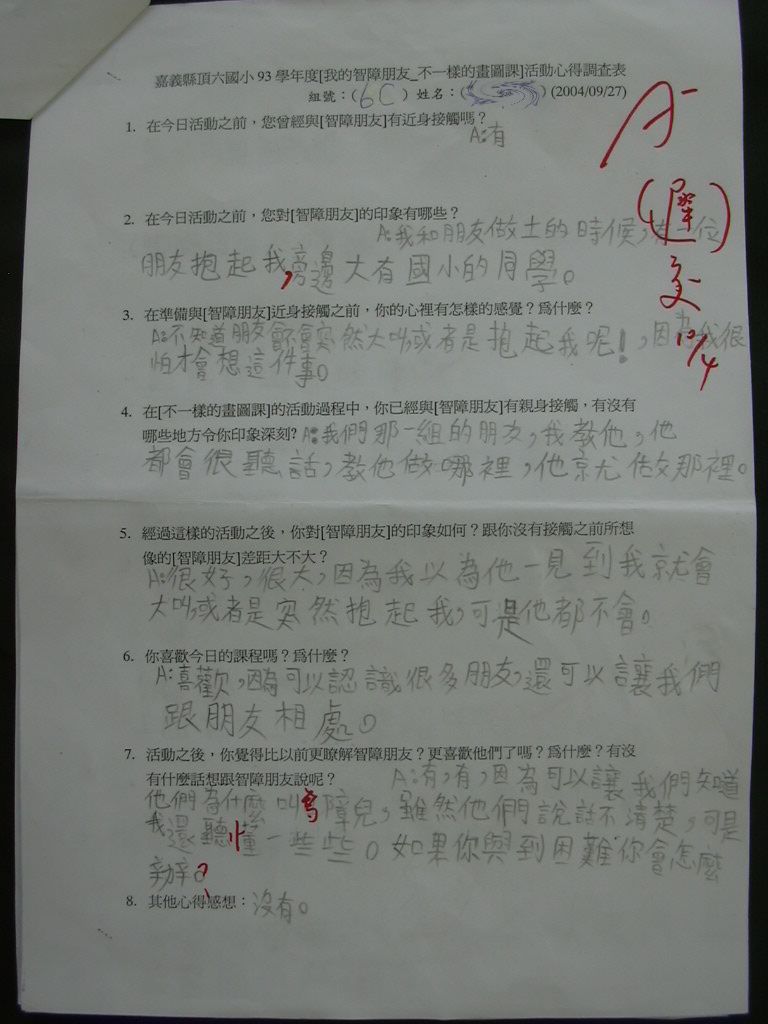 嘉義縣頂六國小93學年度[我的智障朋友_不一樣的畫圖課]活動心得調查表
組號：(6C) 姓名：( ) (2004/09/27)
A-
(遲)
交
10/4
1. 在今日活動之前，您曾經與[智障朋友]有近身接觸嗎？
A:有
2. 在今日活動之前，您對[智障朋友]的印象有哪些？
A:我和朋友做土的時候，有一位
朋友抱起我,旁邊大有國小的同學。
3. 在準備與[智障朋友]近身接觸之前，你的心裡有怎樣的感覺？爲什麼？
A:不知道朋友會不會突然大叫或者是抱起我呢！，因為我很
怕才會想這件事。
4. 在[不一樣的畫圖課]的活動過程中，你已經與[智障朋友]有親身接觸，有沒有
哪些地方令你印象深刻? A:我們那一組的朋友，我教他，他
都會很聽話，教他做哪裡，他就做那裡。
5. 經過這樣的活動之後，你對[智障朋友]的印象如何？跟你沒有接觸之前所想
像的[智障朋友]差距大不大？
A:很好，很大，因為我以為他一見到我就會
大叫或者是突然抱起我，可是他都不會。
6. 你喜歡今日的課程嗎？爲什麼？
A:喜歡，因為可以認識很多朋友，還可以讓我們
跟朋友相處。
7. 活動之後，你覺得比以前更瞭解智障朋友？更喜歡他們了嗎？爲什麼？有沒
有什麼話想跟智障朋友說呢？ A:有，有，因為可以讓我們知道
他們為什麼叫障兒，雖然他們說話不清楚，可是
我還聽懂一些些。如果你與到困難你會怎麼
辦。?
8. 其他心得感想：沒有。